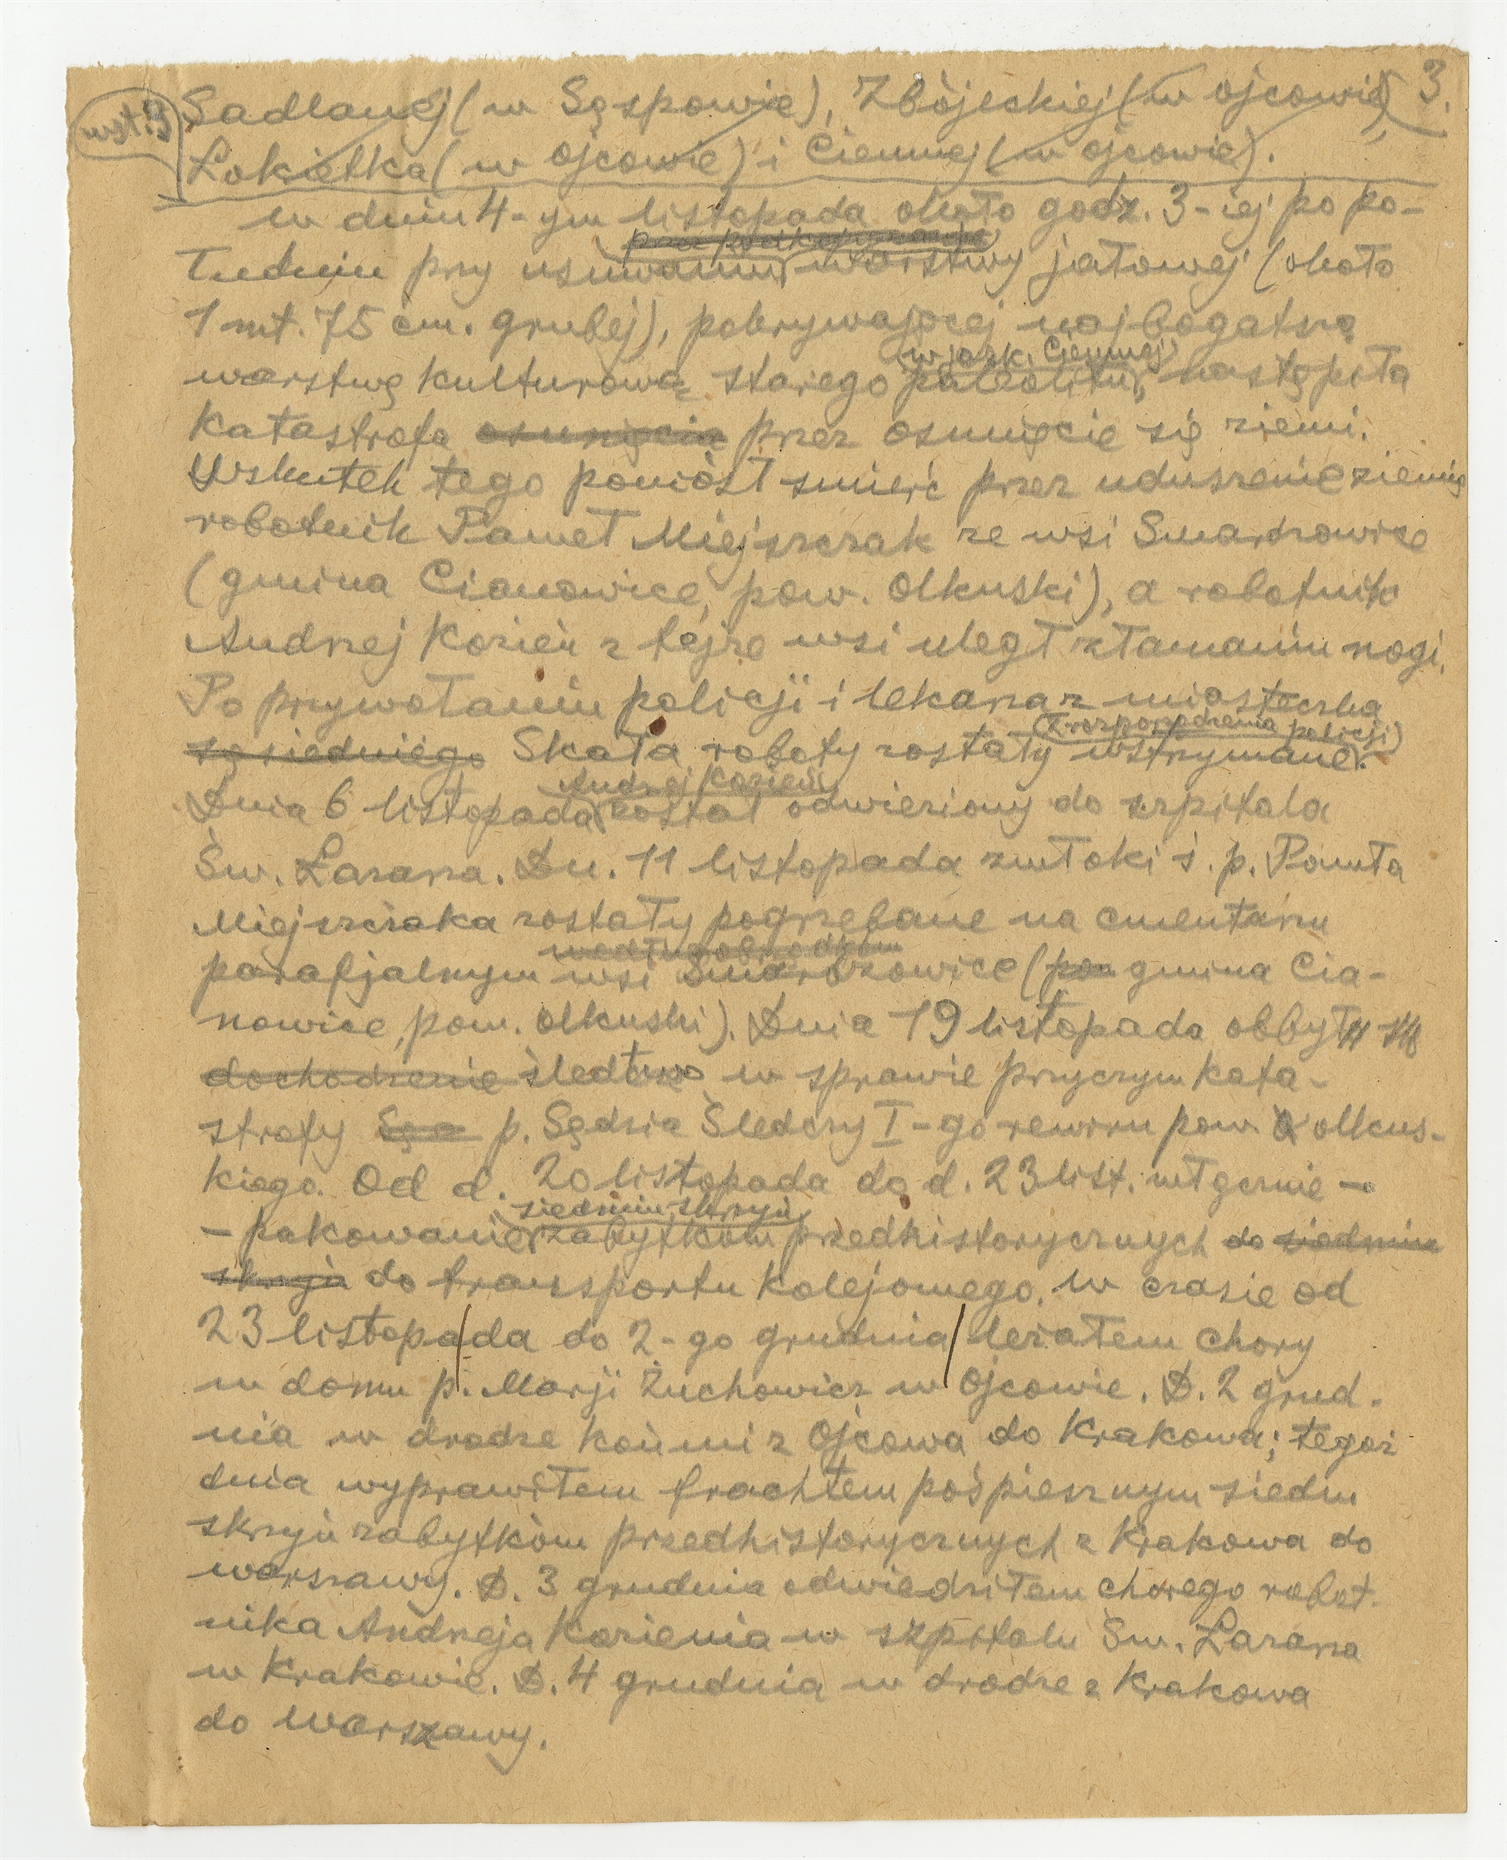 3.
wst. 3
Sadlanej (w Sąspowie), Zbójeckiej (w Ojcowie),
Łokietka (w Ojcowie) i Ciemnej (w Ojcowie).
W dniu 4-ym listopada około godz. 3-iej po po-
przez podkopywanie
łudniu przy usuwaniu warstwy jałowej (około
1 mt. 75 cm. grubej), pokrywającej najbogatszą
w jask. Ciemnej
warstwę kulturową starego paleolitu, nastąpiła
katastrofa osunięcia przez osunięcie się ziemi.
Wskutek tego poniósł śmierć przez uduszenie ziemią
robotnik Paweł Miejszczak ze wsi Smardzowice
(gmina Cianowice, pow. Olkuski), a robotnik
Andrzej Kozień z tejże wsi uległ złamaniu nogi.
Po przywołaniu policji i lekarza z miasteczka
(z rozporządzenia policji)
sąsiedniego Skała roboty zostały wstrzymane.
Andrzej Kozień
Dnia 6 listopada został odwieziony do szpitala
Św. Łazarza. Dn. 11 listopada zwłoki ś. p. Pawła
Miejszczaka zostały pogrzebane na cmentarzu
według obrządku
parafjalnym wsi Smardzowice (pow gmina Cia-
nowice, pow. olkuski). Dnia 19 listopada odbył
dochodzenie śledztwo w sprawie przyczyn kata-
strofy Sęa p. Sędzia Śledczy I-go rewiru pow. olkus-
kiego. Od d. 20 listopada do d. 23 list. włącznie -
siedmiu skrzyń
- pakowanie zabytków przedhistorycznych do siedmiu
skrzyń do transportu kolejowego. W czasie od
23 listopada do 2-go grudnia leżałem chory
w domu p. Marji Żuchowicz w Ojcowie. D. 2 grud-
nia w drodze końmi z Ojcowa do Krakowa; tegoż
dnia wyprawiłem frachtem pośpiesznym siedm
skrzyń zabytków przedhistorycznych z Krakowa do
Warszawy. D. 3 grudnia odwiedziłem chorego robot-
nika Andrzeja Kozienia w szpitalu Św. Łazarza
w Krakowie. D. 4 grudnia w drodze z Krakowa
do Warszawy.